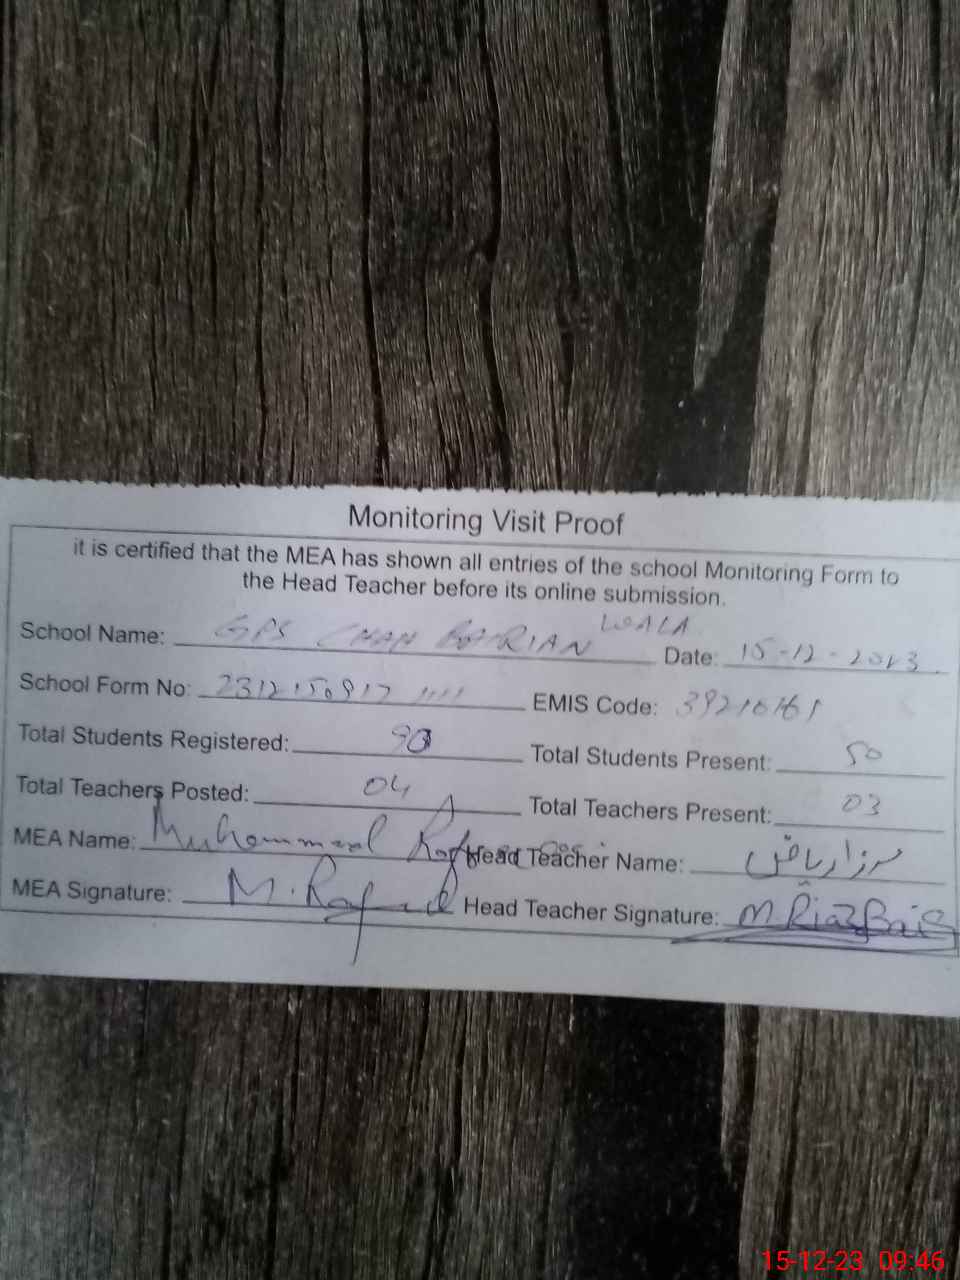 Monitoring Visit Proof
it is certified that the MEA has shown all entries of the school Monitoring Form to
the Head Teacher before its online submission.
School Name: GPS CHAH WALA Date: 15-12-2023
School Form No: EMIS Code:
Total Students Registered: 90 Total Students Present: 50
Total Teachers Posted: 04 Total Teachers Present: 03
MEA Name: Muhammad Head Teacher Name: مرزا ریاض
MEA Signature: M. Head Teacher Signature: M Riaz Baig
15-12-23 09:46